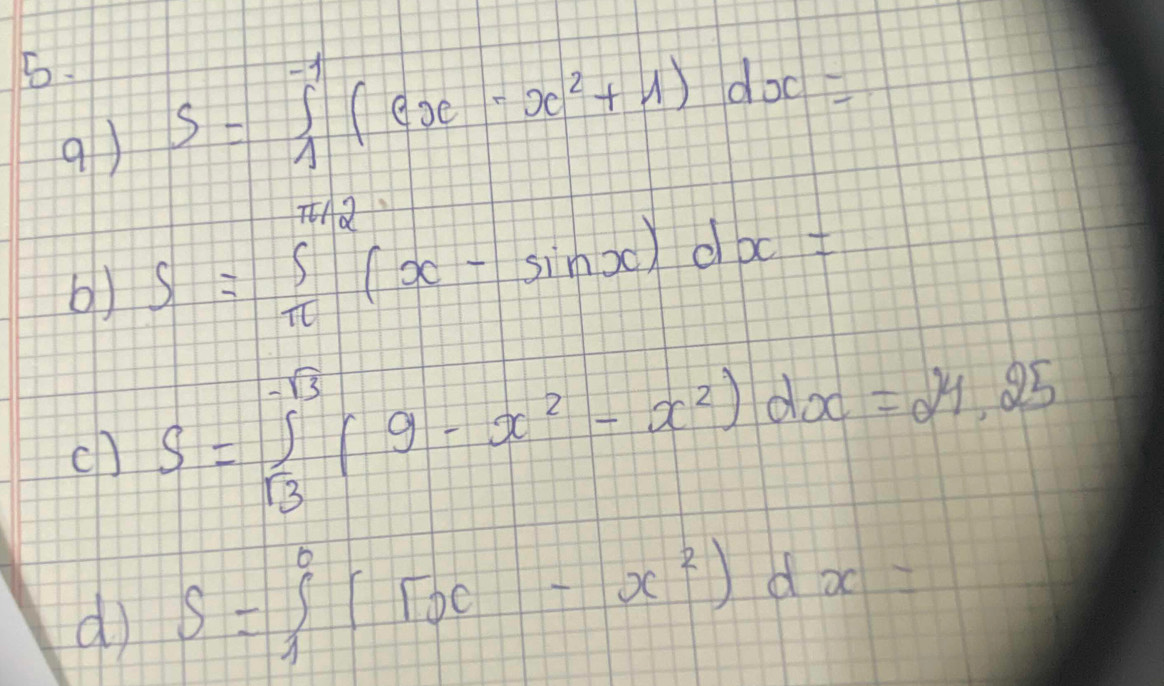 5.
a) S = ∫₁⁻¹ (ex - x² + 1) dx =
b) S = ∫_π^{π/2} (x - sinx) dx =
c) S = ∫_{√3}^{-√3} (9 - x² - x²) dx = 24.25
d) S = ∫₁⁰ (√x - x²) dx =